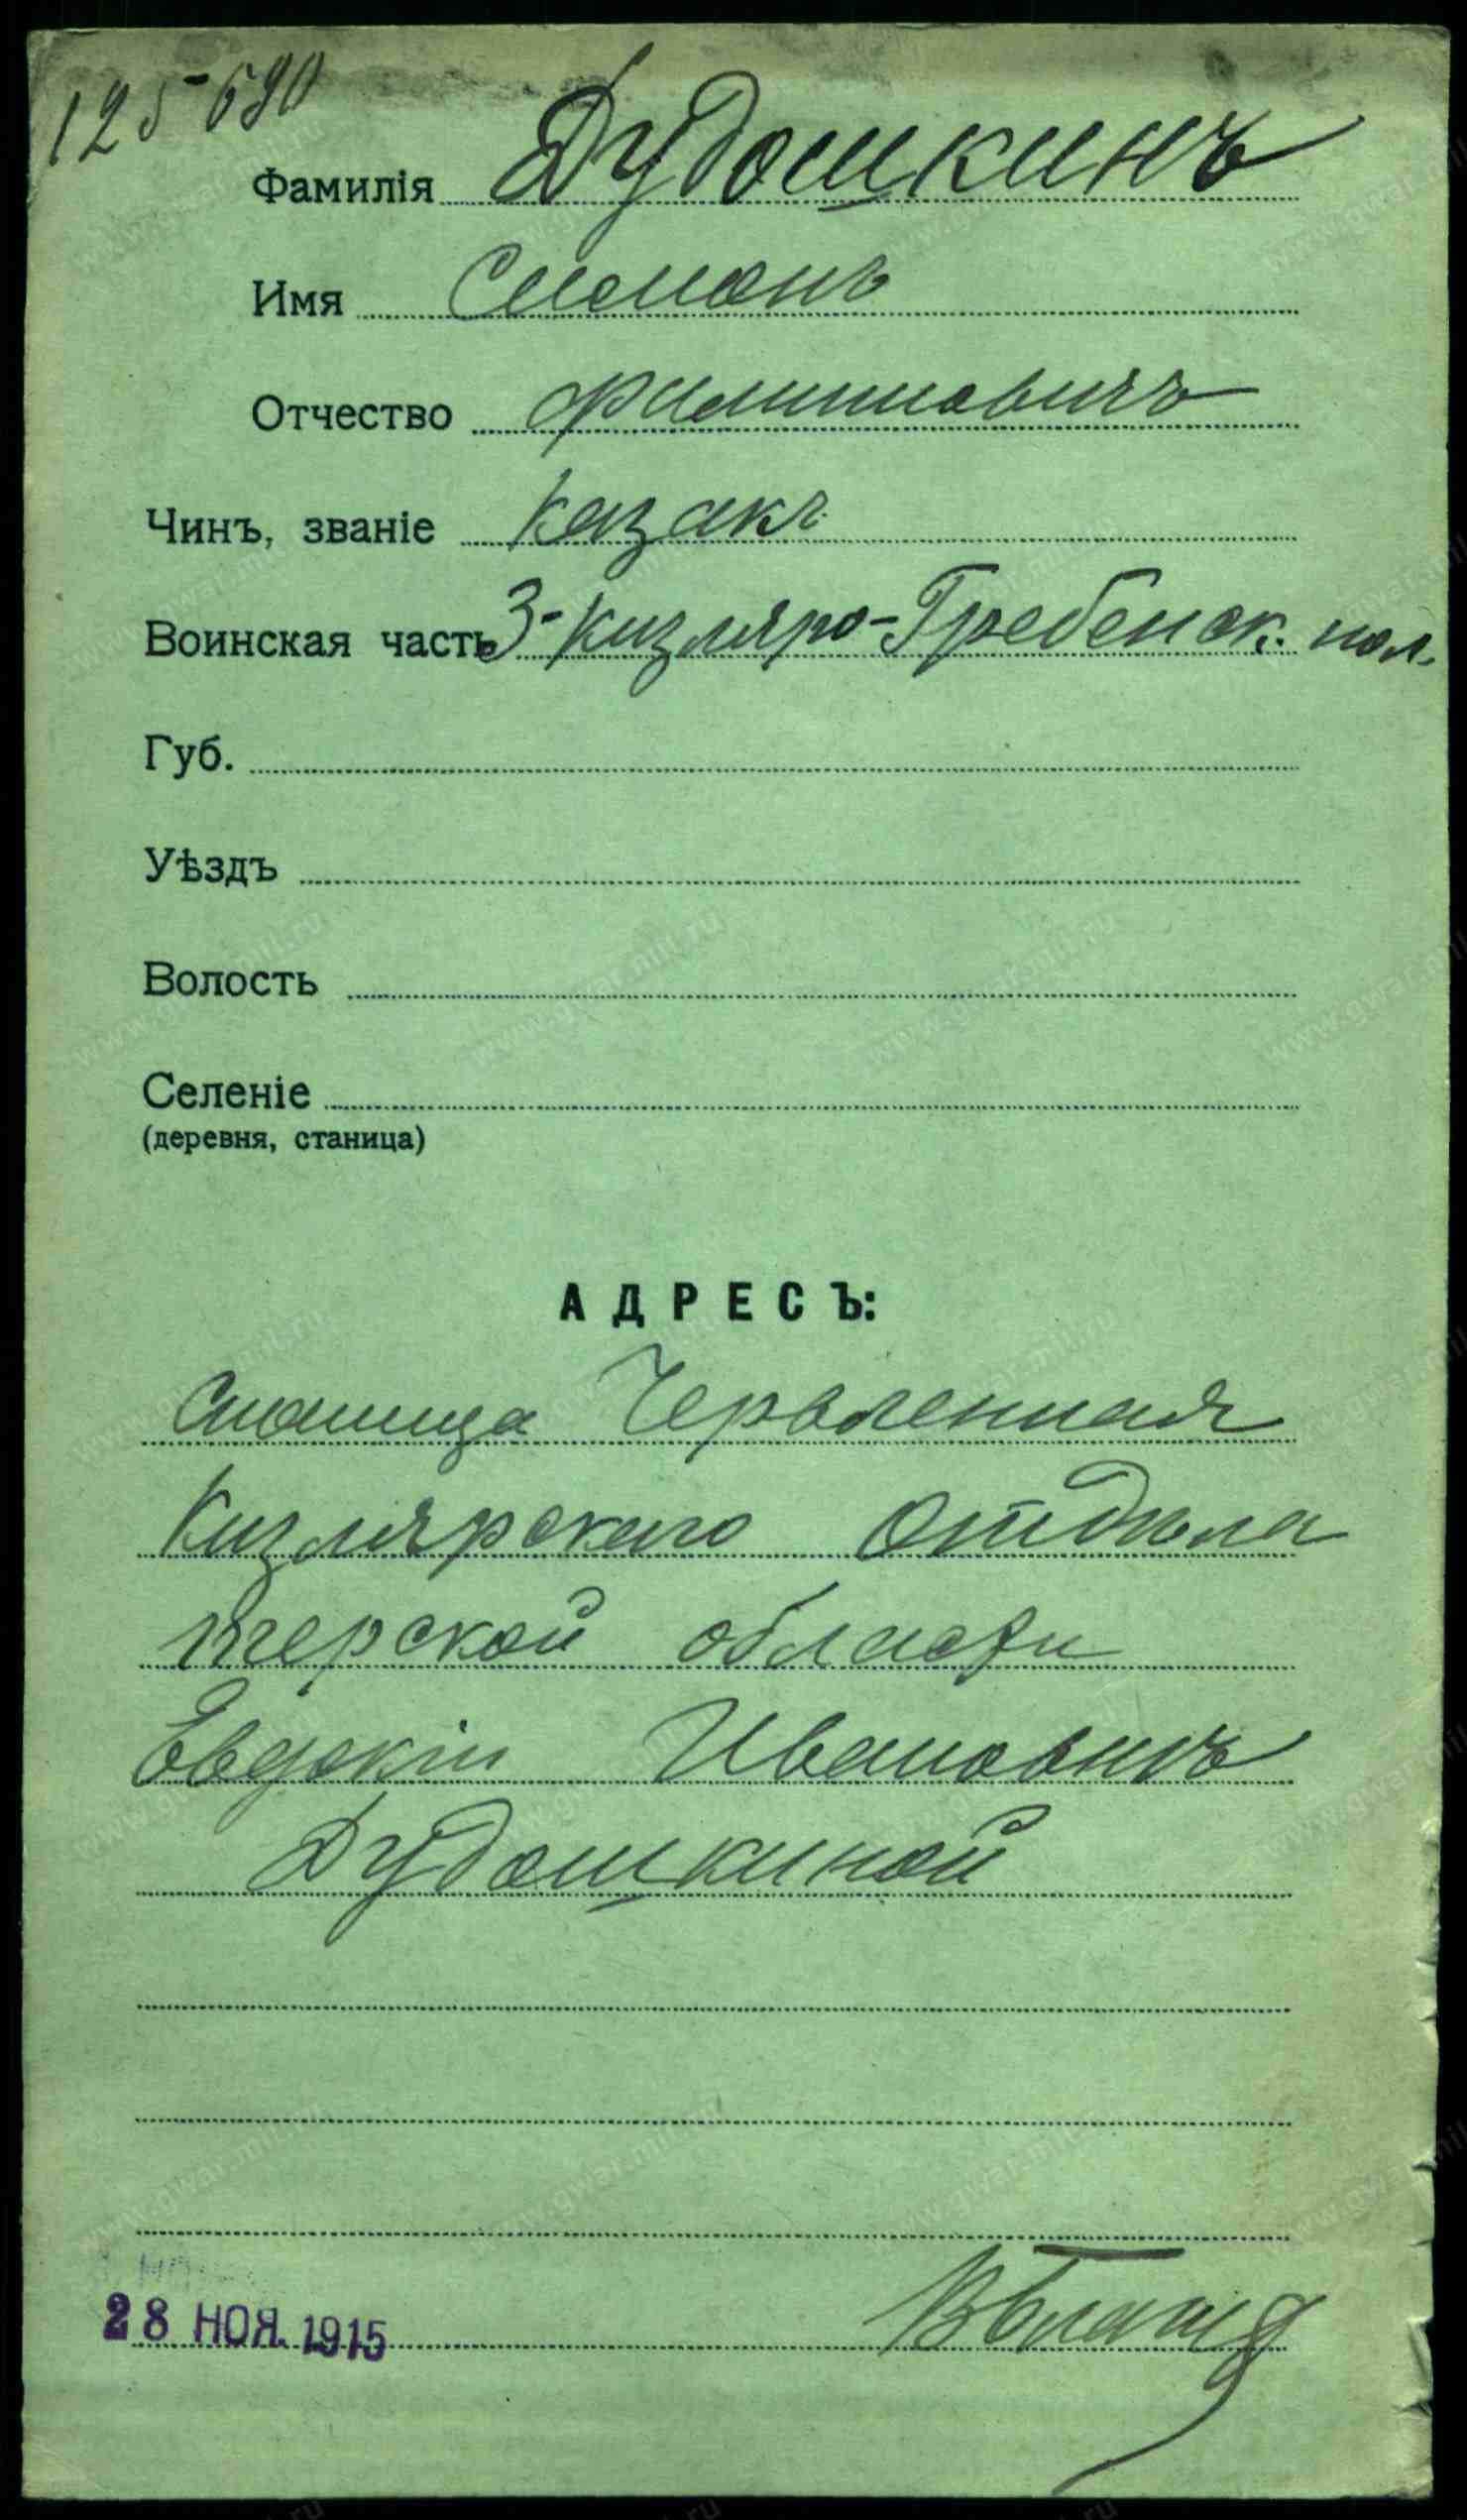 125690
Фамилія Дудошкинъ
Имя Симонъ
Отчество Филипповичъ
Чинъ, званіе Казакъ
Воинская часть 3-Кизляро-Гребенск. пол.
Губ.
Уѣздъ
Волость
Селеніе
(деревня, станица)
АДРЕСЪ:
Станица Червленная
Кизлярскаго Отдѣла
Терской области
Евдокіи Ивановнѣ
Дудошкиной
28 НОЯ. 1915